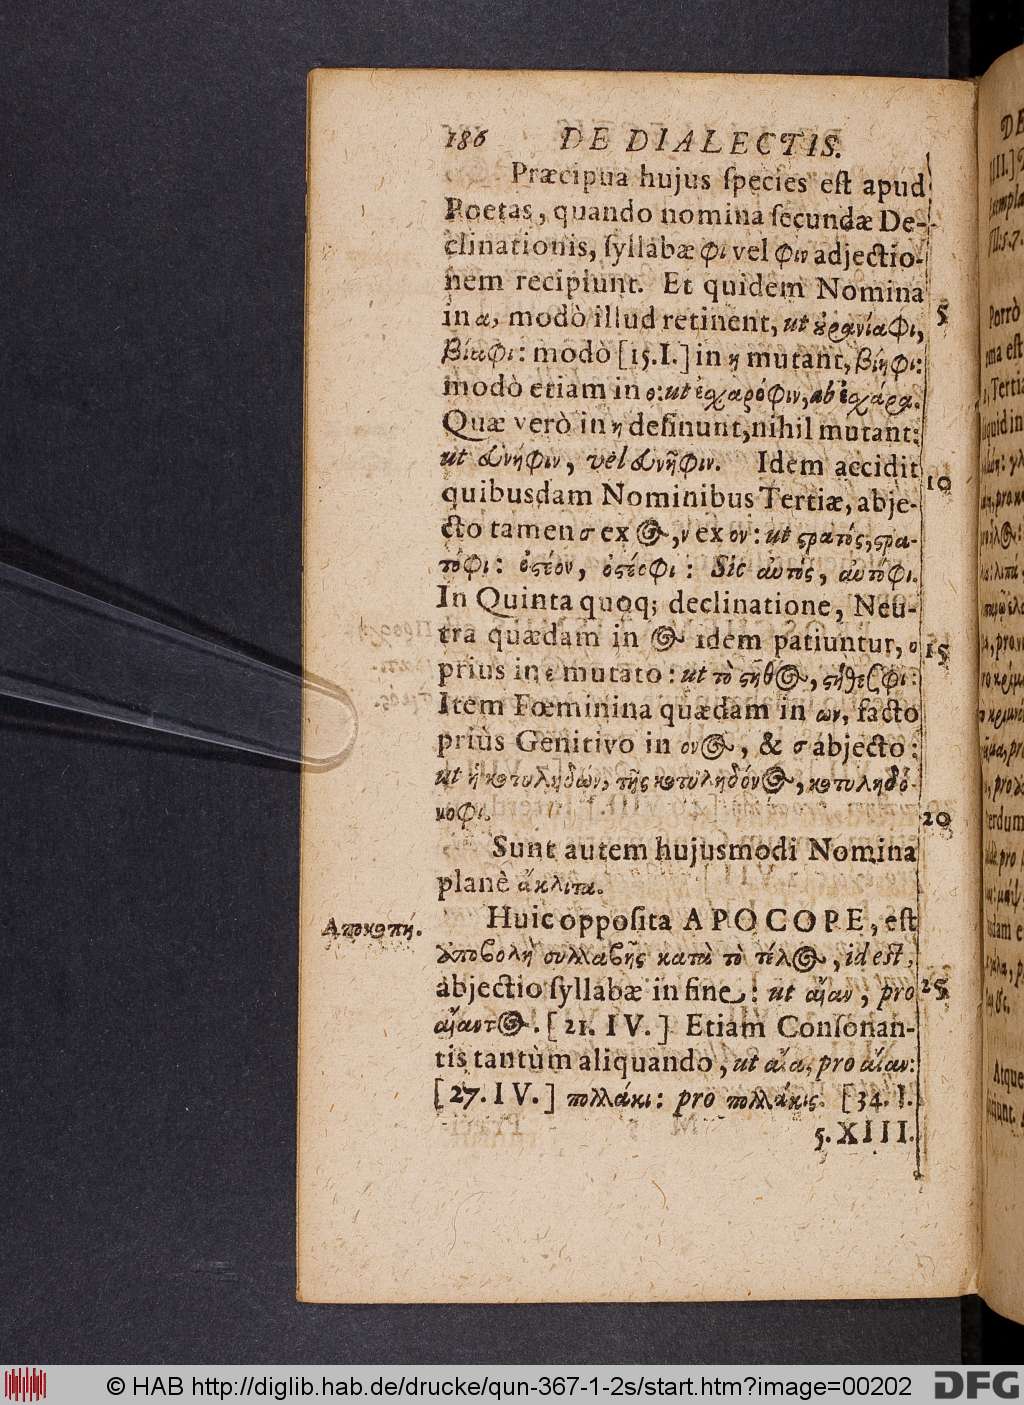 186 DE DIALECTIS.
Præcipua hujus ſpecies eſt apud
Poetas, quando nomina ſecundæ De-
clinationis, ſyllabæ φι vel φιν adjectio-
nem recipiunt. Et quidem Nomina
in α, modò illud retinent, ut ȣ̓ρανίαφι, 5
βίαφι: modò [15.I.] in η mutant, βίηφι:
modò etiam in ο: ut ἐσχαρόφιν, ab ἐσχάρα.
Quæ verò in η deſinunt, nihil mutant:
ut εὐνήφιν, vel εὐνῆφιν. Idem accidit
quibusdam Nominibus Tertiæ, abje- 10
cto tamen σ ex ος, ν ex ον: ut ϛρατός, ϛρα-
τόφι: ὀϛέον, ὀϛέοφι: Sic αὐτὸς, αὐτόφι.
In Quinta quoq; declinatione, Neu-
tra quædam in ος idem patiuntur, ο
prius in ε mutato: ut τὸ ϛῆθος, ϛήθεσφι: 15
Item Fœminina quædam in ων, facto
priùs Genitivo in ονος, & σ abjecto:
ut ἡ κοτυληδών, τῆς κοτυληδόνος, κοτυληδό-
νοφι.
Sunt autem hujusmodi Nomina 20
planè ἄκλιτα.
Αποκοπή. Huic oppoſita APOCOPE, eſt
ἀποβολὴ συλλαβῆς κατὰ τὸ τέλος, id eſt,
abjectio ſyllabæ in fine: ut αἶαν, pro 25
αἴαντος. [21. IV.] Etiam Conſonan-
tis tantùm aliquando, ut αἶα, pro αἶαν:
[27. IV.] πολλάκι: pro πολλάκις. [34. I.
5. XIII.
© HAB http://diglib.hab.de/drucke/qun-367-1-2s/start.htm?image=00202 DFG